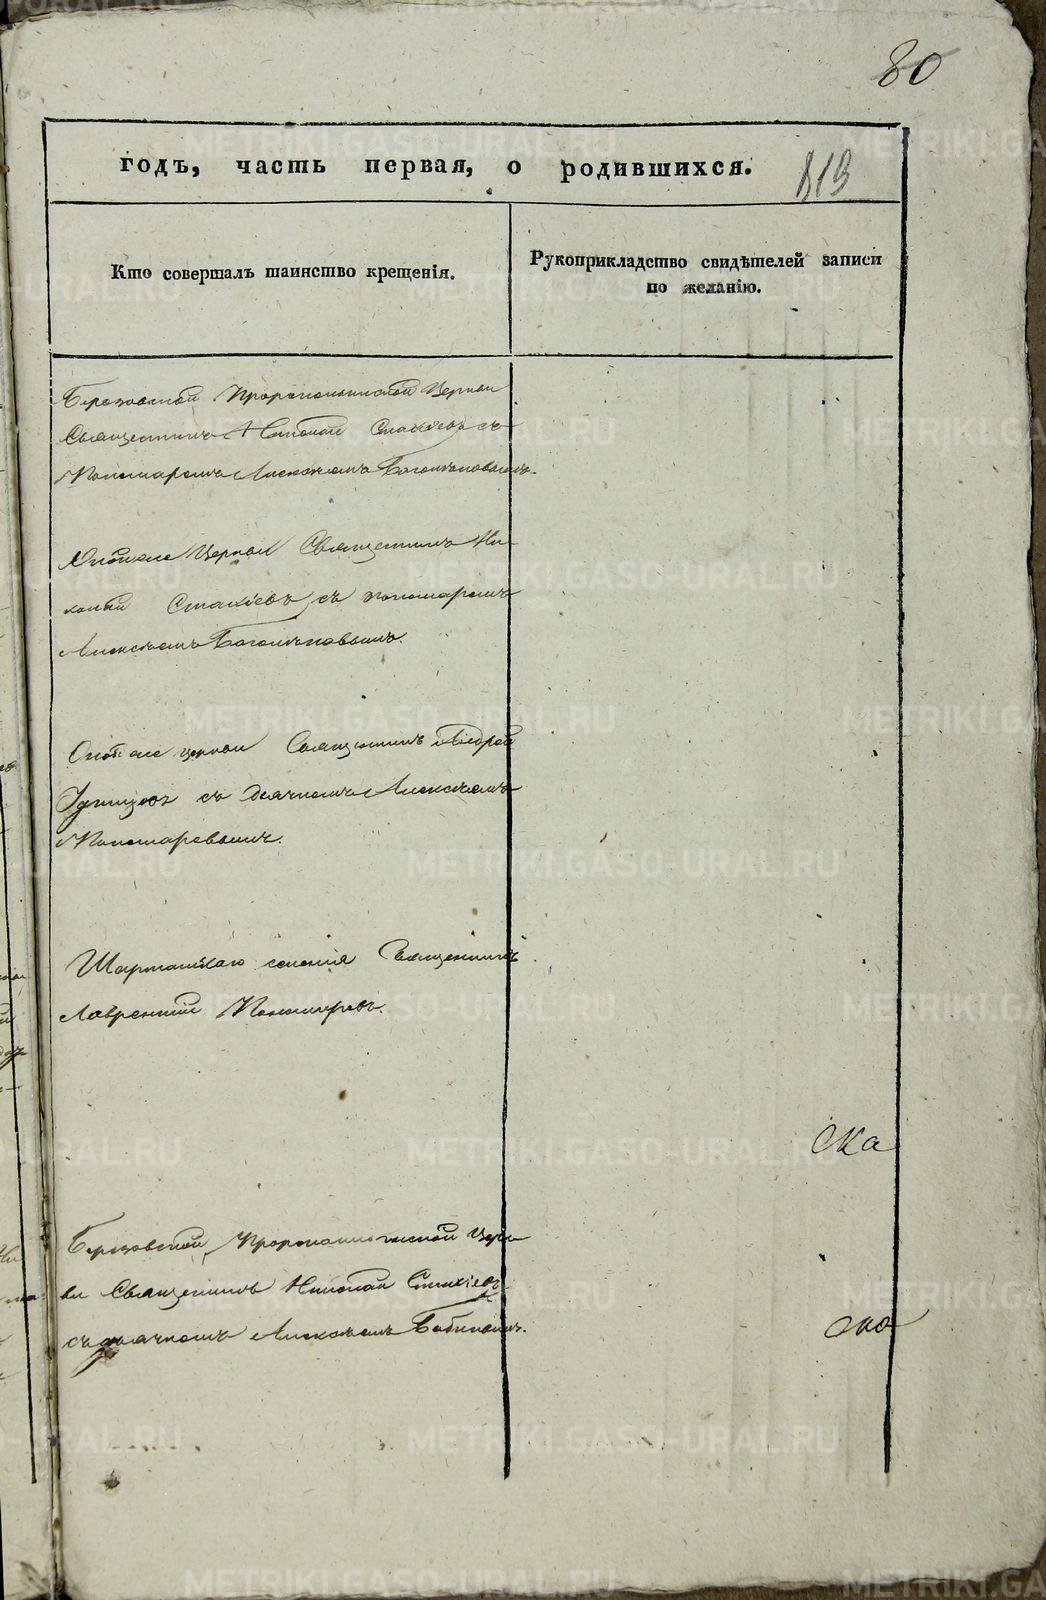 80
годъ, часть первая, о родившихся.
819
Кто совершалъ таинство крещенія.
Рукоприкладство свидѣтелей записи
по желанію.
Березовской Пророкоильинской Церкви
Священникъ Николай Стахіевъ съ
Пономаремъ Алексѣемъ
Онойже Церкви Священникъ Ни-
колай Стахіевъ съ пономаремъ
Алексѣемъ
Онойже церкви Священникъ Андрей
съ дьячкомъ Алексѣемъ
Пономаревымъ.
Шарташскаго селенія Священникъ
Лаврентій Пономаревъ.
ска
Березовской Пророкоильинской Церк-
ви Священникъ Николай Стахіевъ
съ дьячкомъ Алексѣемъ Бабиновымъ.
ска
METRIKI.GASO-URAL.RU